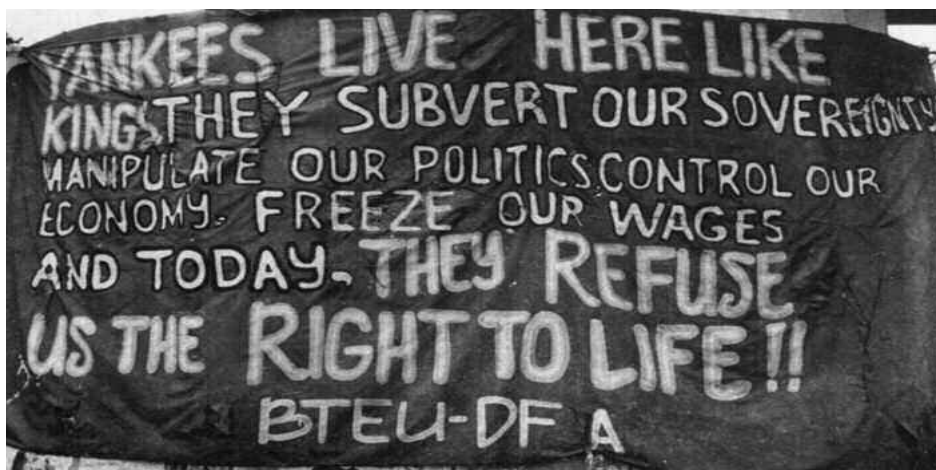 YANKEES LIVE HERE LIKE
KINGS. THEY SUBVERT OUR SOVEREIGNTY
MANIPULATE OUR POLITICS, CONTROL OUR
ECONOMY. FREEZE OUR WAGES
AND TODAY - THEY REFUSE
US THE RIGHT TO LIFE!!
BTEU-DFA